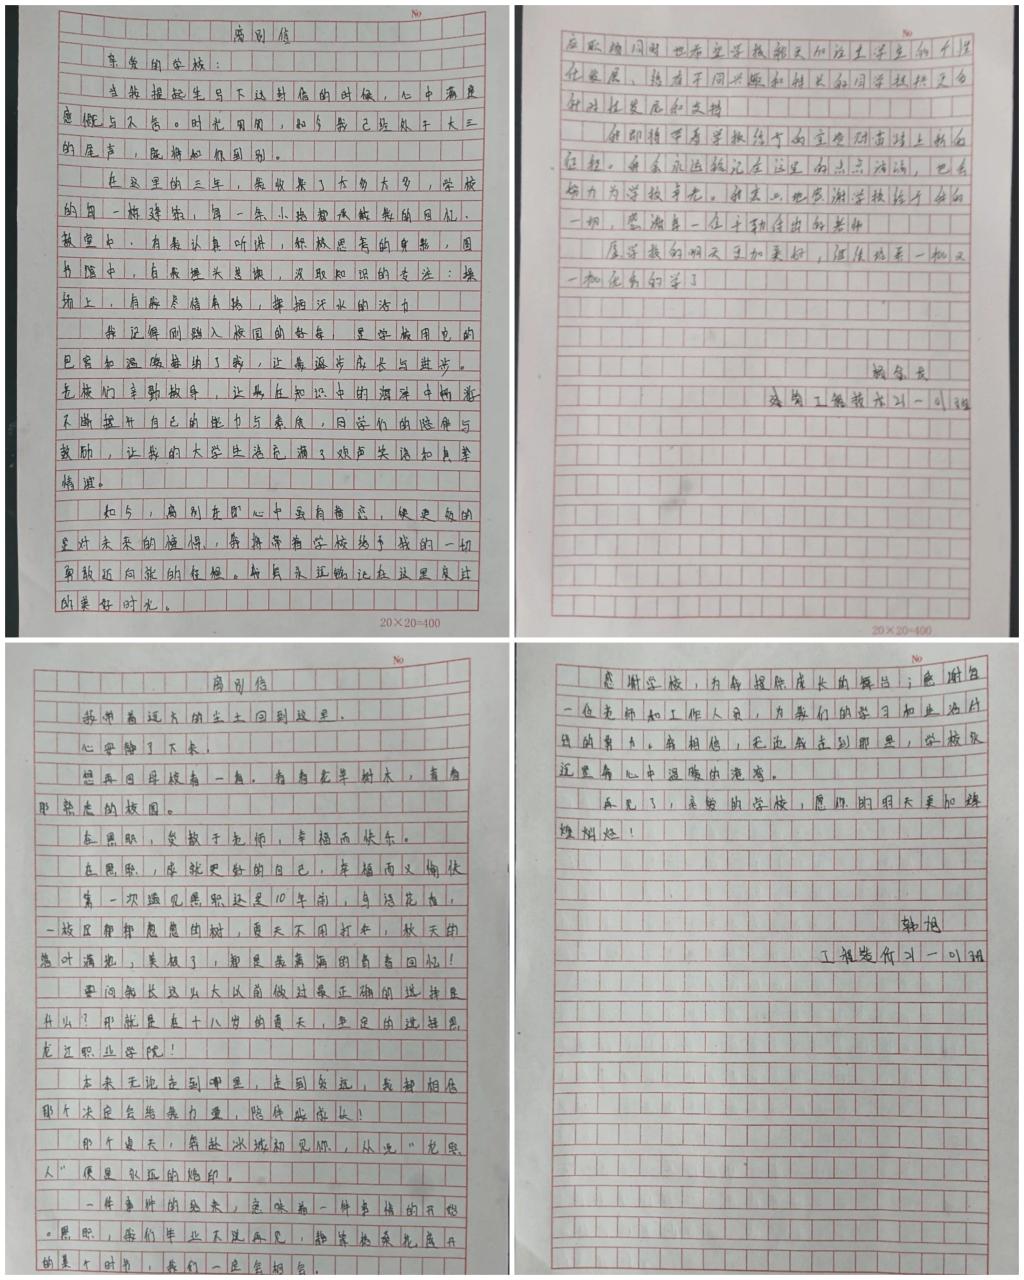 No
离别信
亲爱的学校：
当我提起笔写下这封信的时候，心中满是
感慨与不舍。时光匆匆，如今我已经处于大三
的尾声，即将和你别。
在这里的三年，我收集了太多太多，学校
的每一栋建筑，每一条小路都承载我的回忆.
教室中，有我认真听讲，积极思考的身影，图
书馆中，自我埋头苦读，汲取知识的专注：操
场上，有我尽情奔跑，挥洒汗水的活力
我记得刚踏入校园的时候，是学校用它的
包容和温暖接纳了我，让我逐步成长与进步。
老师们辛勤教导，让我在知识中的海洋中畅游
不断提升自己的能力与素质，同学们的陪伴与
鼓励，让我的大学生活充满了欢声笑语和真挚
情谊。
如今，离别在即心中虽有眷恋，但更多的
是对未来的憧憬，我将带着学校给予我的一切
勇敢迈向新的征程。我会永远铭记在这里度过
的美好时光。
20×20=400
No
应职 同时也希望学校 关注学生的个性
化发展，给有不同兴趣和特长的同学提供更多
针对性发展和支持
我即将带着学校给予的宝贵财富踏上新的
征程。我会永远铭记在这里的点点滴滴，也会
努力为学校争光。我衷心地感谢学校给予我的
一切，感谢每一位辛勤付出的老师
愿学校的明天更加美好，继续培养一批又
一批优秀的学子
工程技术21-01班
20×20=400
No
离别信
我带着远方的尘土回到这里.
心安静了下来.
想再回母校看一看。看看花草树木，看看
那熟悉的校园。
在黑职，受教于老师，幸福而快乐。
在黑职，成就更好的自己，幸福而又愉快
第一次遇见黑职还是10年前，鸟语花香，
一校区郁郁葱葱的树，夏天不用打伞，秋天的
落叶满地，美极了，都是我满满的青春回忆！
要问我长这么大以前做过最正确的选择是
什么？那就是在十八岁的夏天，坚定的选择黑
龙江职业学院！
本来无论走到哪里，走到多远，我都相信
那个决定会给我力量，陪伴我成长！
那个夏天，奔赴冰城初见你，从此“龙职
人”便是永远的烙印。
一件事件的结束，意味着一件事情的开始
。黑职，我们毕业不说再见，静等 花盛开
的某个时节，我们一定会相会.
No
感谢学校，为我提供成长的舞台；感谢每
一位老师和工作人员，为我们的学习和生活付
出的努力。我相信，无论我走到那里，学校永
远是我心中温暖的港湾。
再见了，亲爱的学校，愿你的明天更加辉
煌灿烂！
韩旭
工程造价21-01班